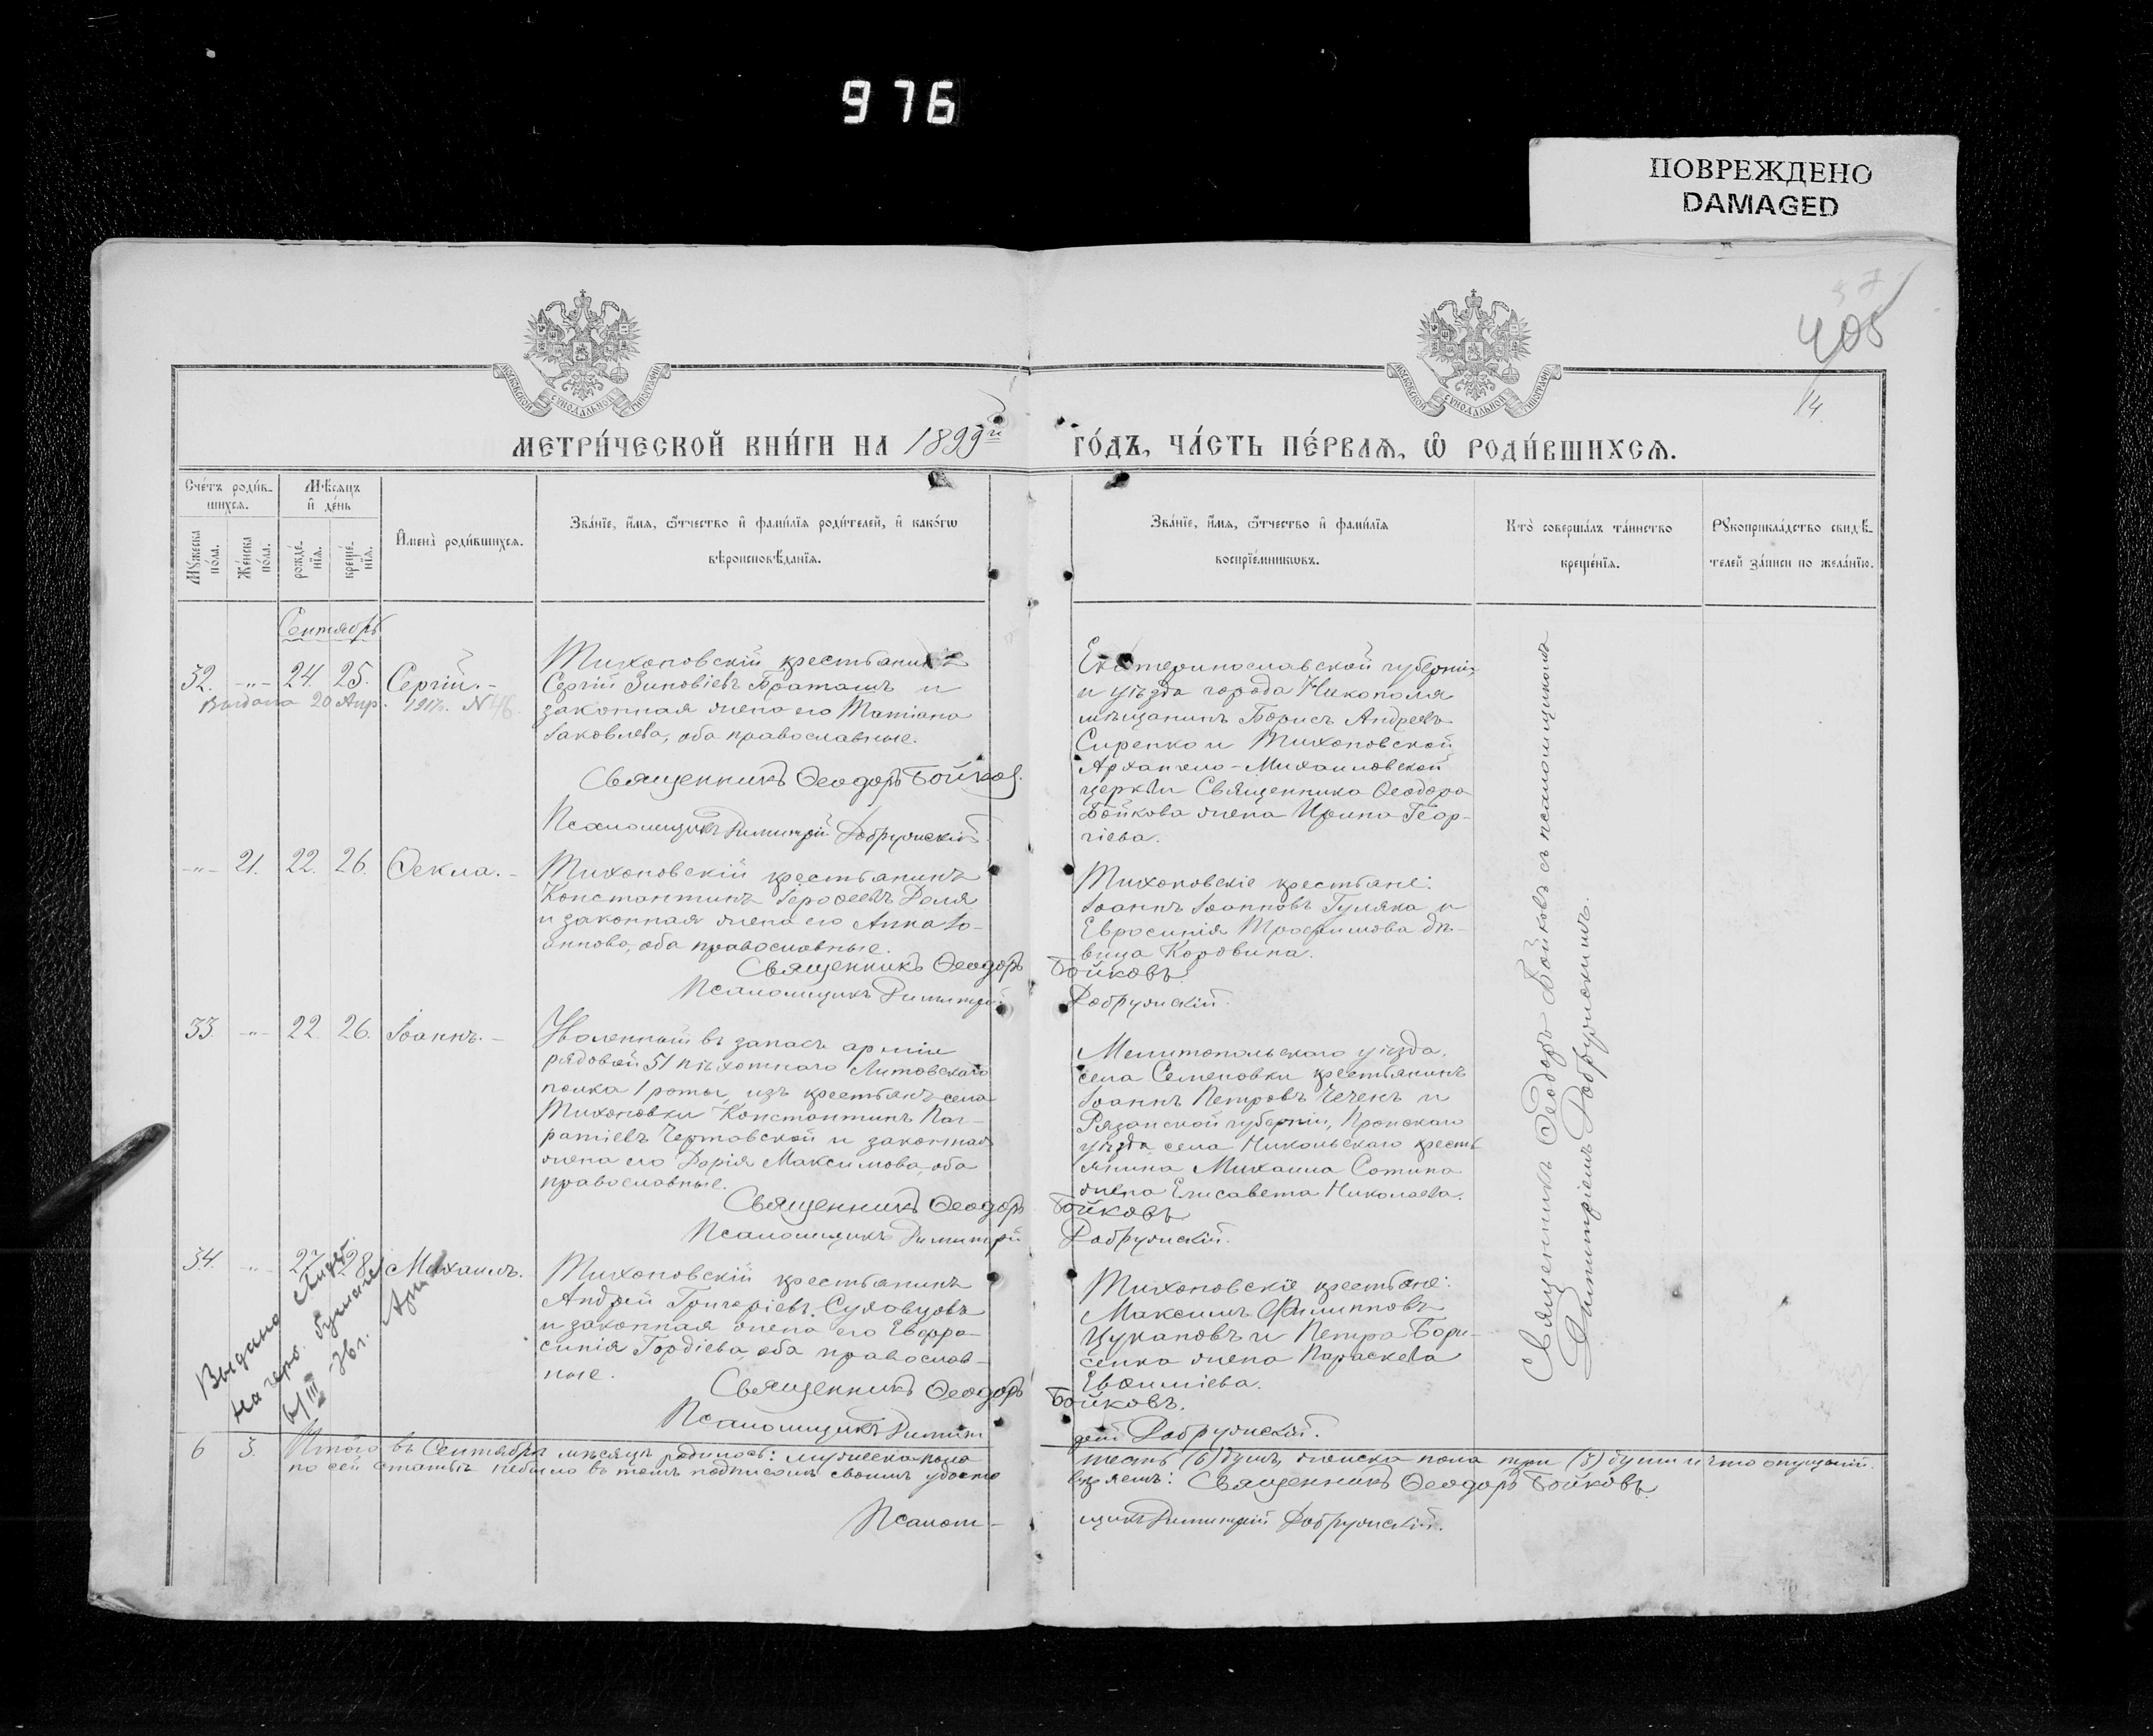 976
ПОВРЕЖДЕНО
DAMAGED
405
14.
МЕТРИ́ЧЕСКОЙ КНИ́ГИ НА 1899й
ГО́ДЪ, ЧА́СТЬ ПЕ́РВАЯ, Ѽ РОДИ́ВШИХСЯ.
МОСКОВСКОЙ СѴНОДАЛЬНОЙ ТИПОГРАФІИ
МОСКОВСКОЙ СѴНОДАЛЬНОЙ ТИПОГРАФІИ
Сче́тъ роди́в-
шихся.
Мѣ́сяцъ
и҆ де́нь
Му́жеска
по́ла.
Же́нска
по́ла.
рожде́-
нїя.
креще́-
нїя.
И҆мена̀ роди́вшихся.
Зва́нїе, и҆́мя, ѻ҆́тчество и҆ фами́лїя роди́телей, и҆ како́гѡ
вѣроисповѣ́данїя.
Зва́нїе, и҆́мя, ѻ҆́тчество и҆ фами́лїя
воспрїе́мникѡвъ.
Кто̀ соверша́лъ та́инство
креще́нїя.
Рꙋкоприкла́дство свидѣ́-
телей за́писи по жела́нїю.
Сентябрь
32. -"- 24 25. Сергій. -
Выдана 20 Апр. 1917г. №46.
Тихоновскій крестьянинъ
Сергій Зиновіевъ Браташъ и
законная жена его Татіана
Іаковлева, оба православные.
Священникъ Ѳеодоръ Бойковъ.
Псаломщикъ Димитрій Добружскій
Екатеринославской губерніи
и уѣзда города Никополя
мѣщанинъ Борисъ Андреевъ
Сиренко и Тихоновской
Архангело-Михаиловской
церкви Священника Ѳеодора
Бойкова жена Ирина Геор-
гіева.
-"- 21. 22. 26. Ѳекла. -
Тихоновскій крестьянинъ
Константинъ Іероѳеевъ Доля
и законная жена его Анна Іо-
аннова, оба православные.
Священникъ Ѳеодоръ Бойковъ
Псаломщикъ Димитрій Добружскій.
Тихоновскіе крестьяне:
Іоаннъ Іоанновъ Гуляка и
Евросинія Трофимова дѣ-
вица Коровина.
33. -"- 22. 26. Іоаннъ. -
Уволенный въ запасъ арміи
рядовой 51 пѣхотнаго Литовскаго
полка 1 роты, изъ крестьянъ села
Тихоновки Константинъ Пан-
ратіевъ Чертовской и законная
жена его Дарія Максимова, оба
православные.
Священникъ Ѳеодоръ Бойковъ
Псаломщикъ Димитрій Добружскій.
Мелитопольскаго уѣзда,
села Семеновки крестьянинъ
Іоаннъ Петровъ Чечекъ и
Рязанской губерніи, Пронскаго
уѣзда села Никольскаго кресть
янина Михаила Сотина
жена Елисавета Николаева.
34. -"- 27 28 Михаилъ.
Выдано
на герб. бумагѣ
Тихоновскій крестьянинъ
Андрей Григоріевъ Суховцовъ
и законная жена его Евфро-
синія Гордіева, оба православ-
ные.
Священникъ Ѳеодоръ Бойковъ.
Псаломщикъ Димит рій Добружскій.
Тихоновскіе крестьяне:
Максимъ Филипповъ
Цукановъ и Петра Бори-
сенка жена Параскева
Евѳиміева.
Священникъ Ѳеодоръ Бойковъ съ псаломщикомъ
Димитріемъ Добружскимъ.
6 3. Итого въ Сентябрѣ мѣсяцѣ родилось: мужеска пола шесть (6) душъ, женска пола три (3) души и что опущеній
по сей статьѣ небыло въ томъ подписомъ своимъ удосто вѣряемъ: Священникъ Ѳеодоръ Бойковъ.
Псалом- щикъ Димитрій Добружскій.